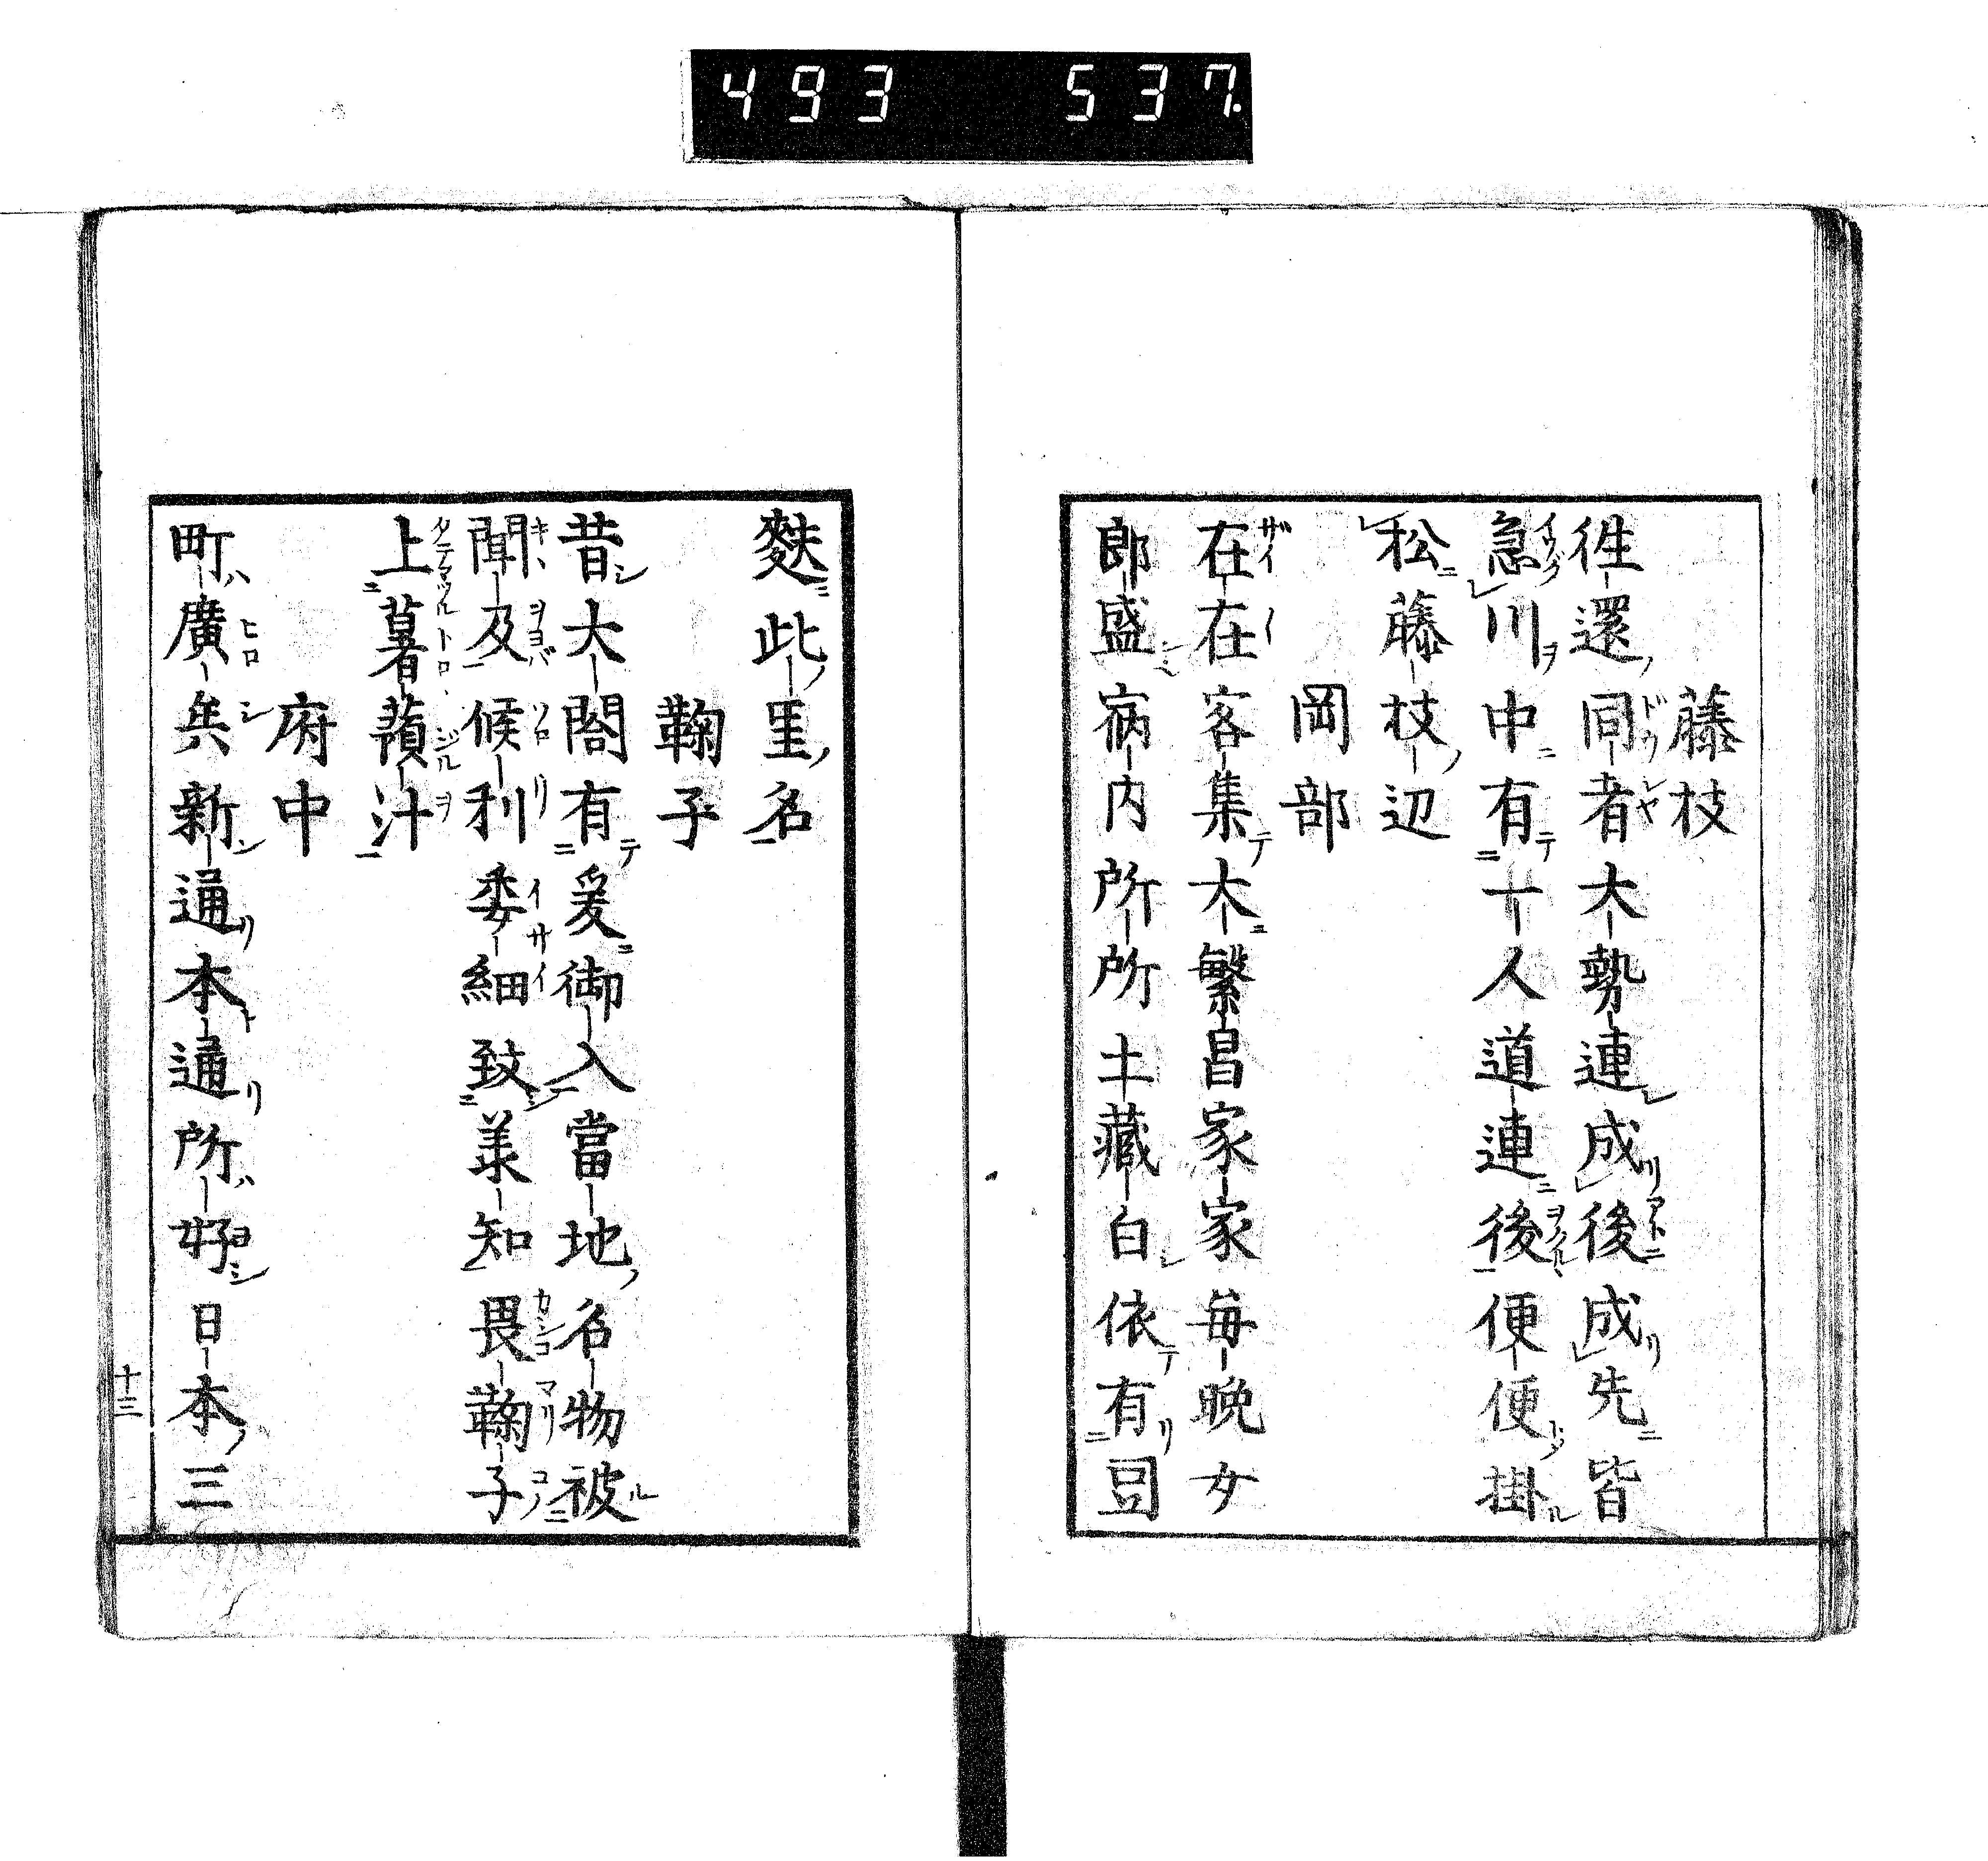 493 537.
藤枝
徃還同者大勢連成後成先皆
急川中有十人道連後便便掛
松藤枝辺
岡部
在在客集大繁昌家家毎晩女
郎盛病内所所土藏白依有豆
麩此里名
鞠子
昔大閤有爰御入當地名物被
聞及候利委細致羕知畏鞠子
上薯蕷汁
府中
町廣兵新通本通所好日本三
十三